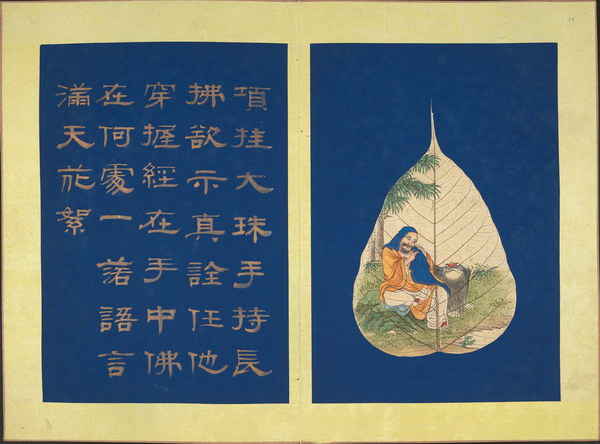 項挂大珠手持長
拂欲示真詮任他
穿握經在手中佛
在何處一落語言
滿天於絮